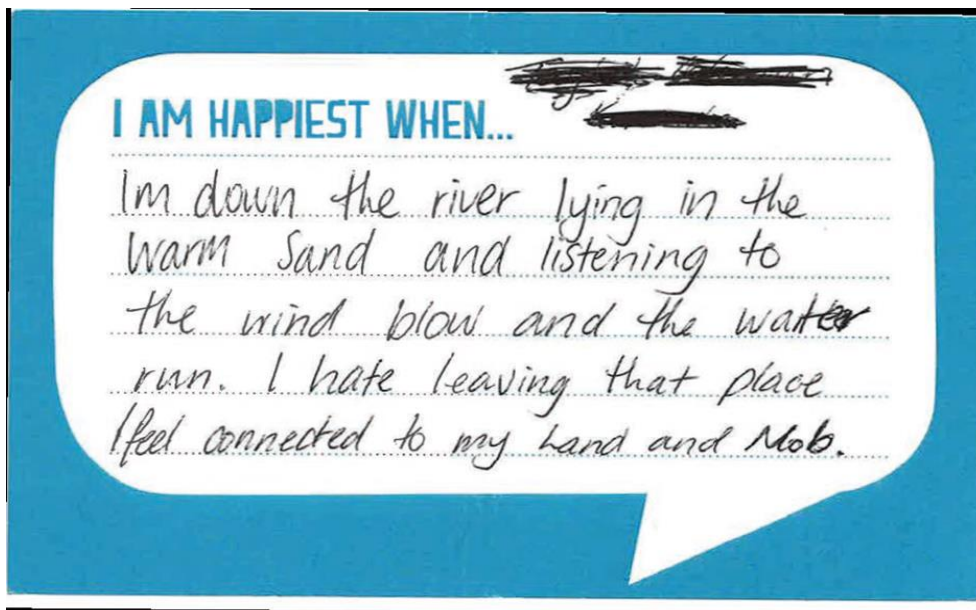 I AM HAPPIEST WHEN...
Im down the river lying in the
warm Sand and listening to
the wind blow and the water
run. I hate leaving that place
I feel connected to my Land and Mob.